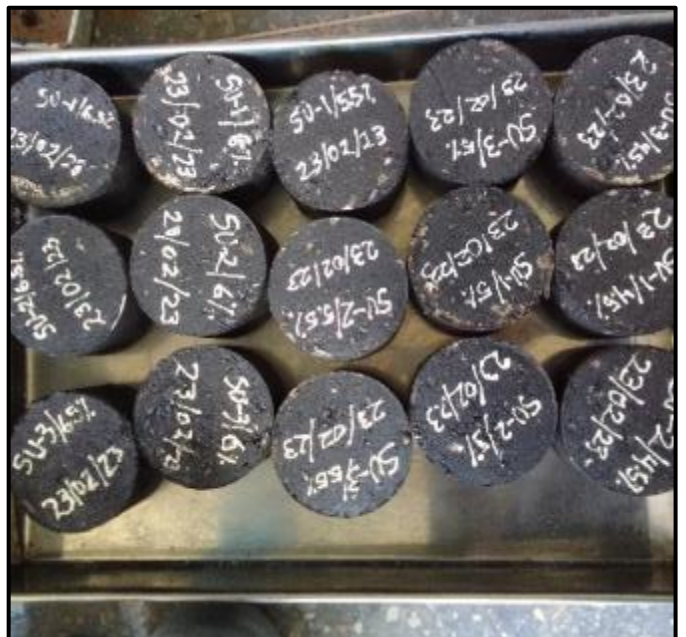 SU-1/6.5%
23/02/23
SU-1/6%
23/02/23
SU-1/5.5%
23/02/23
SU-3/5%
23/02/23
SU-3/4.5%
23/02/23
SU-2/6.5%
23/02/23
SU-2/6%
23/02/23
SU-2/5.5%
23/02/23
SU-1/5%
23/02/23
SU-1/4.5%
23/02/23
SU-3/6.5%
23/02/23
SU-3/6%
23/02/23
SU-3/5.5%
23/02/23
SU-2/5%
23/02/23
SU-2/4.5%
23/02/23